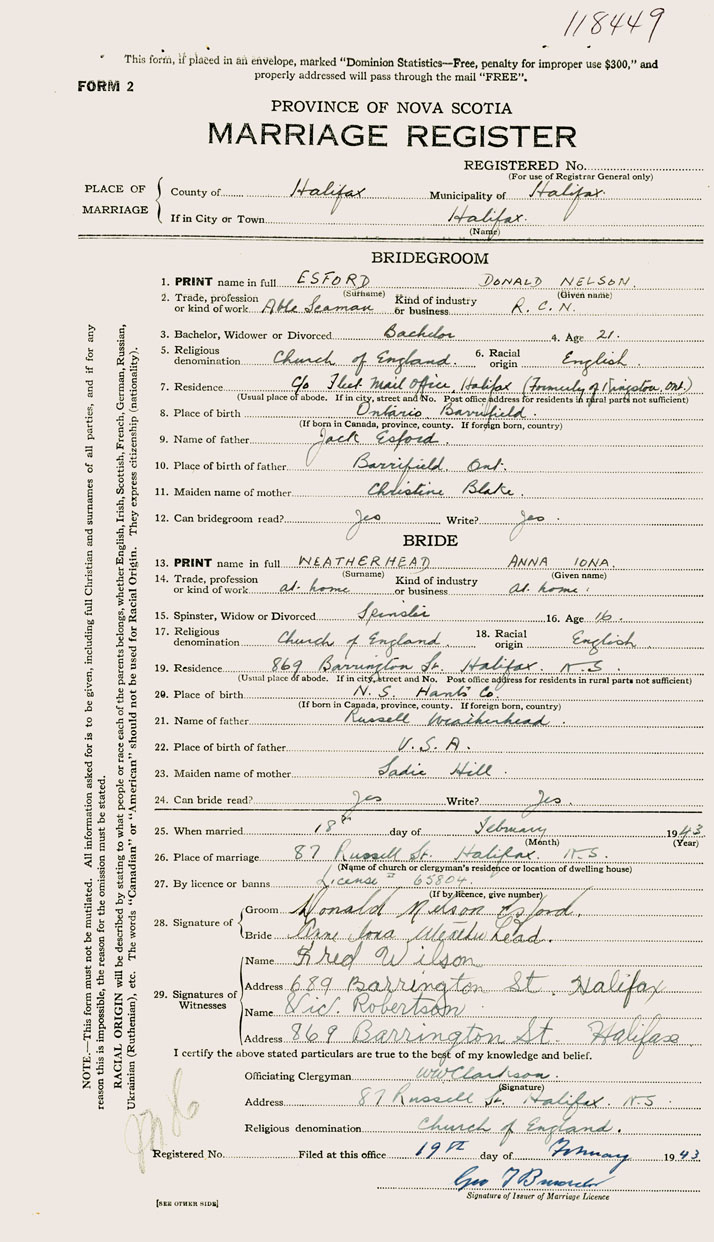 118449
This form, if placed in an envelope, marked "Dominion Statistics—Free, penalty for improper use $300," and
properly addressed will pass through the mail "FREE".
FORM 2
PROVINCE OF NOVA SCOTIA
MARRIAGE REGISTER
REGISTERED No.
(For use of Registrar General only)
PLACE OF MARRIAGE
County of Halifax Municipality of Halifax
If in City or Town Halifax.
(Name)
BRIDEGROOM
1. PRINT name in full ESFORD DONALD NELSON.
(Surname) (Given name)
2. Trade, profession or kind of work Able Seaman Kind of industry or business R.C.N.
3. Bachelor, Widower or Divorced Bachelor 4. Age 21.
5. Religious denomination Church of England. 6. Racial origin English.
7. Residence c/o Fleet Mail Office, Halifax (Formerly of Kingston, Ont.)
(Usual place of abode. If in city, street and No. Post office address for residents in rural parts not sufficient)
8. Place of birth Ontario Barriefield.
(If born in Canada, province, county. If foreign born, country)
9. Name of father Jack Esford.
10. Place of birth of father Barrifield Ont.
11. Maiden name of mother Christine Blake.
12. Can bridegroom read? Yes Write? Yes.
BRIDE
13. PRINT name in full WEATHERHEAD ANNA IONA.
(Surname) (Given name)
14. Trade, profession or kind of work at home Kind of industry or business at home.
15. Spinster, Widow or Divorced Spinster 16. Age 16.
17. Religious denomination Church of England. 18. Racial origin English.
19. Residence 869 Barrington St. Halifax. N.S.
(Usual place of abode. If in city, street and No. Post office address for residents in rural parts not sufficient)
20. Place of birth N.S. Hants Co.
(If born in Canada, province, county. If foreign born, country)
21. Name of father Russell Weatherhead.
22. Place of birth of father U.S.A.
23. Maiden name of mother Sadie Hill.
24. Can bride read? Yes Write? Yes.
25. When married 18th day of February 1943
(Month) (Year)
26. Place of marriage 87 Russell St. Halifax. N.S.
(Name of church or clergyman's residence or location of dwelling house)
27. By licence or banns License # 65804.
(If by licence, give number)
28. Signature of
Groom Donald Nelson Esford.
Bride Anne Iona Weatherhead.
29. Signatures of Witnesses
Name Fred Wilson
Address 689 Barrington St. Halifax
Name Vic. Robertson
Address 869 Barrington St. Halifax.
I certify the above stated particulars are true to the best of my knowledge and belief.
Officiating Clergyman WW Clarkson.
(Signature)
Address 87 Russell St. Halifax. N.S.
Religious denomination Church of England.
Registered No. Filed at this office 19th day of February 1943
Geo
Signature of Issuer of Marriage Licence
[SEE OTHER SIDE]
NOTE.—This form must not be mutilated. All information asked for is to be given, including full Christian and surnames of all parties, and if for any
reason this is impossible, the reason for the omission must be stated.
RACIAL ORIGIN will be described by stating to what people or race each of the parents belongs, whether English, Irish, Scottish, French, German, Russian,
Ukrainian (Ruthenian), etc. The words "Canadian" or "American" should not be used for Racial Origin. They express citizenship (nationality).